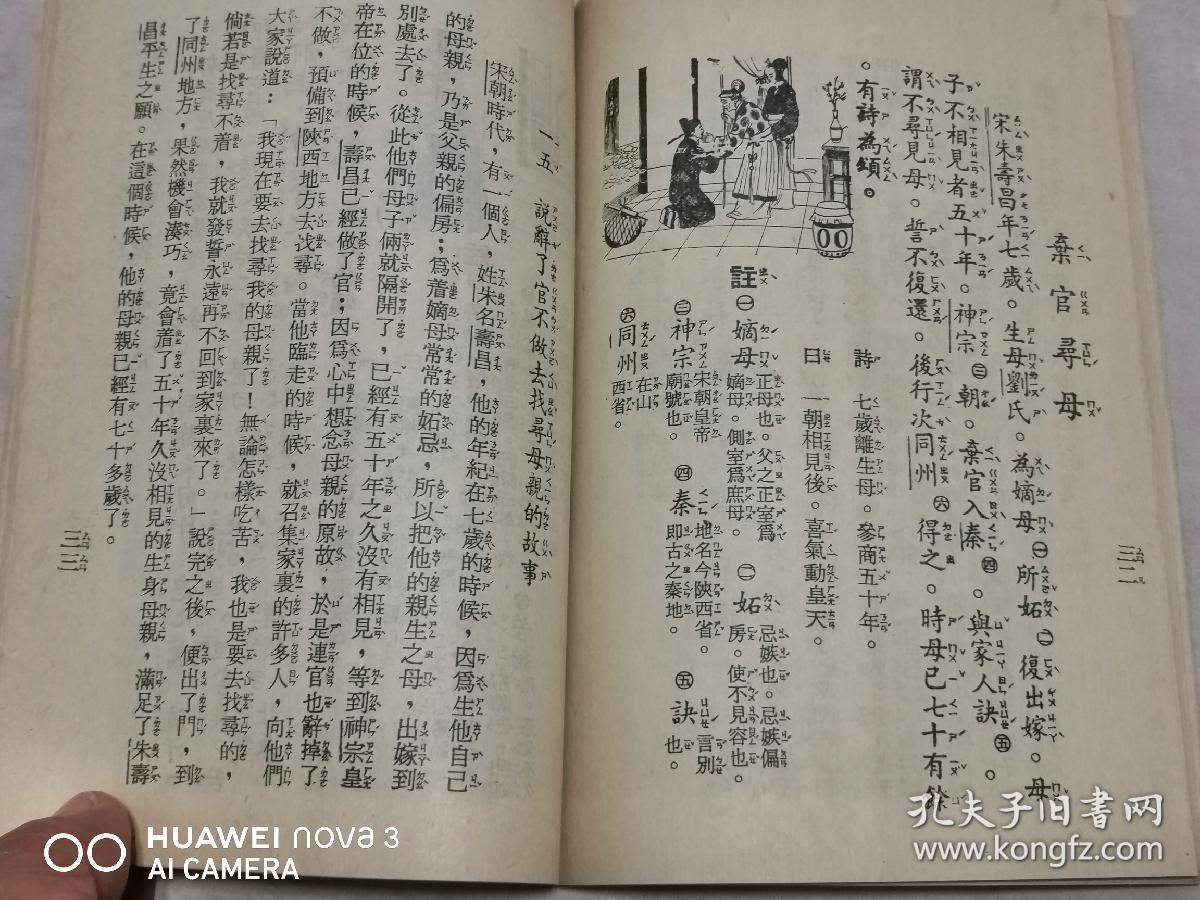 棄官尋母
宋朱壽昌年七歲。生母劉氏。為嫡母㊀所妬㊁復出嫁。母
子不相見者五十年。神宗㊂朝。棄官入秦㊃。與家人訣㊄。
謂不尋見母。誓不復還。後行次同州㊅得之。時母已七十有餘
。有詩為頌。
詩 七歲離生母。參商五十年。
曰 一朝相見後。喜氣動皇天。
註㊀嫡母正母也。父之正室爲嫡母。側室爲庶母。㊁妬忌嫉也。忌嫉偏房。使不見容也。
㊂神宗宋朝皇帝廟號也。㊃秦地名今陝西省。即古之秦地。㊄訣言別也。
㊅同州在山西省。
三二
一五 說辭了官不做去找尋母親的故事
宋朝時代，有一個人，姓朱名壽昌，他的年紀在七歲的時候，因爲生他自己
的母親，乃是父親的偏房；爲着嫡母常常的妬忌，所以把他的親生之母，出嫁到
別處去了。從此他們母子倆就隔開了，已經有五十年之久沒有相見，等到神宗皇
帝在位的時候，壽昌已經做了官；因爲心中想念母親的原故，於是連官也辭掉了
不做，預備到陝西地方去找尋。當他臨走的時候，就召集家裏的許多人，向他們
大家說道：「我現在要去找尋我的母親了！無論怎樣吃苦，我也是要去找尋的，
倘若是找尋不着，我就發誓永遠再不回到家裏來了。」說完之後，便出了門，到
了同州地方，果然機會湊巧，竟會着了五十年久沒相見的生身母親，滿足了朱壽
昌平生之願。在這個時候，他的母親已經有七十多歲了。
三三
HUAWEI nova 3
AI CAMERA
孔夫子旧书网
www.kongfz.com